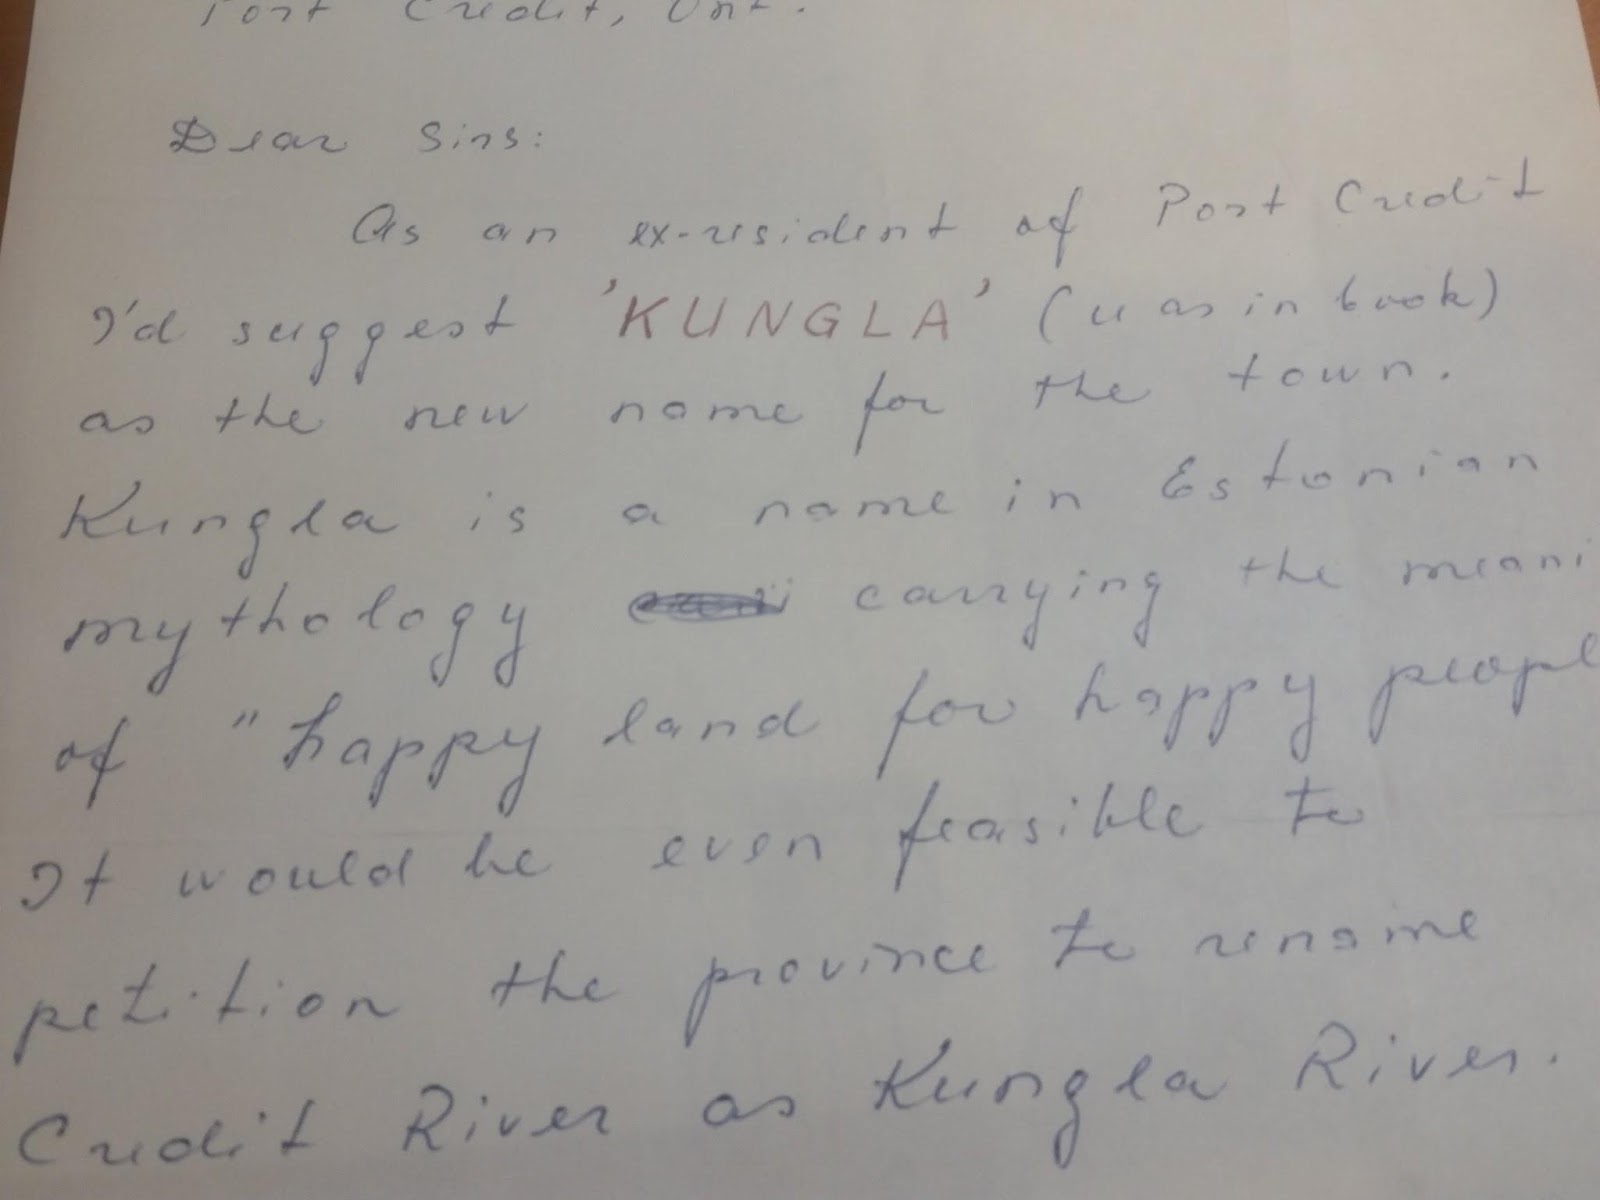 Port Credit, Ont.
Dear Sirs:
As an ex-resident of Port Credit
I'd suggest 'KUNGLA' (u as in book)
as the new name for the town.
Kungla is a name in Estonian
mythology carrying the meani
of "happy land for happy peopl
It would be even feasible to
petition the province to rename
Credit River as Kungla River.